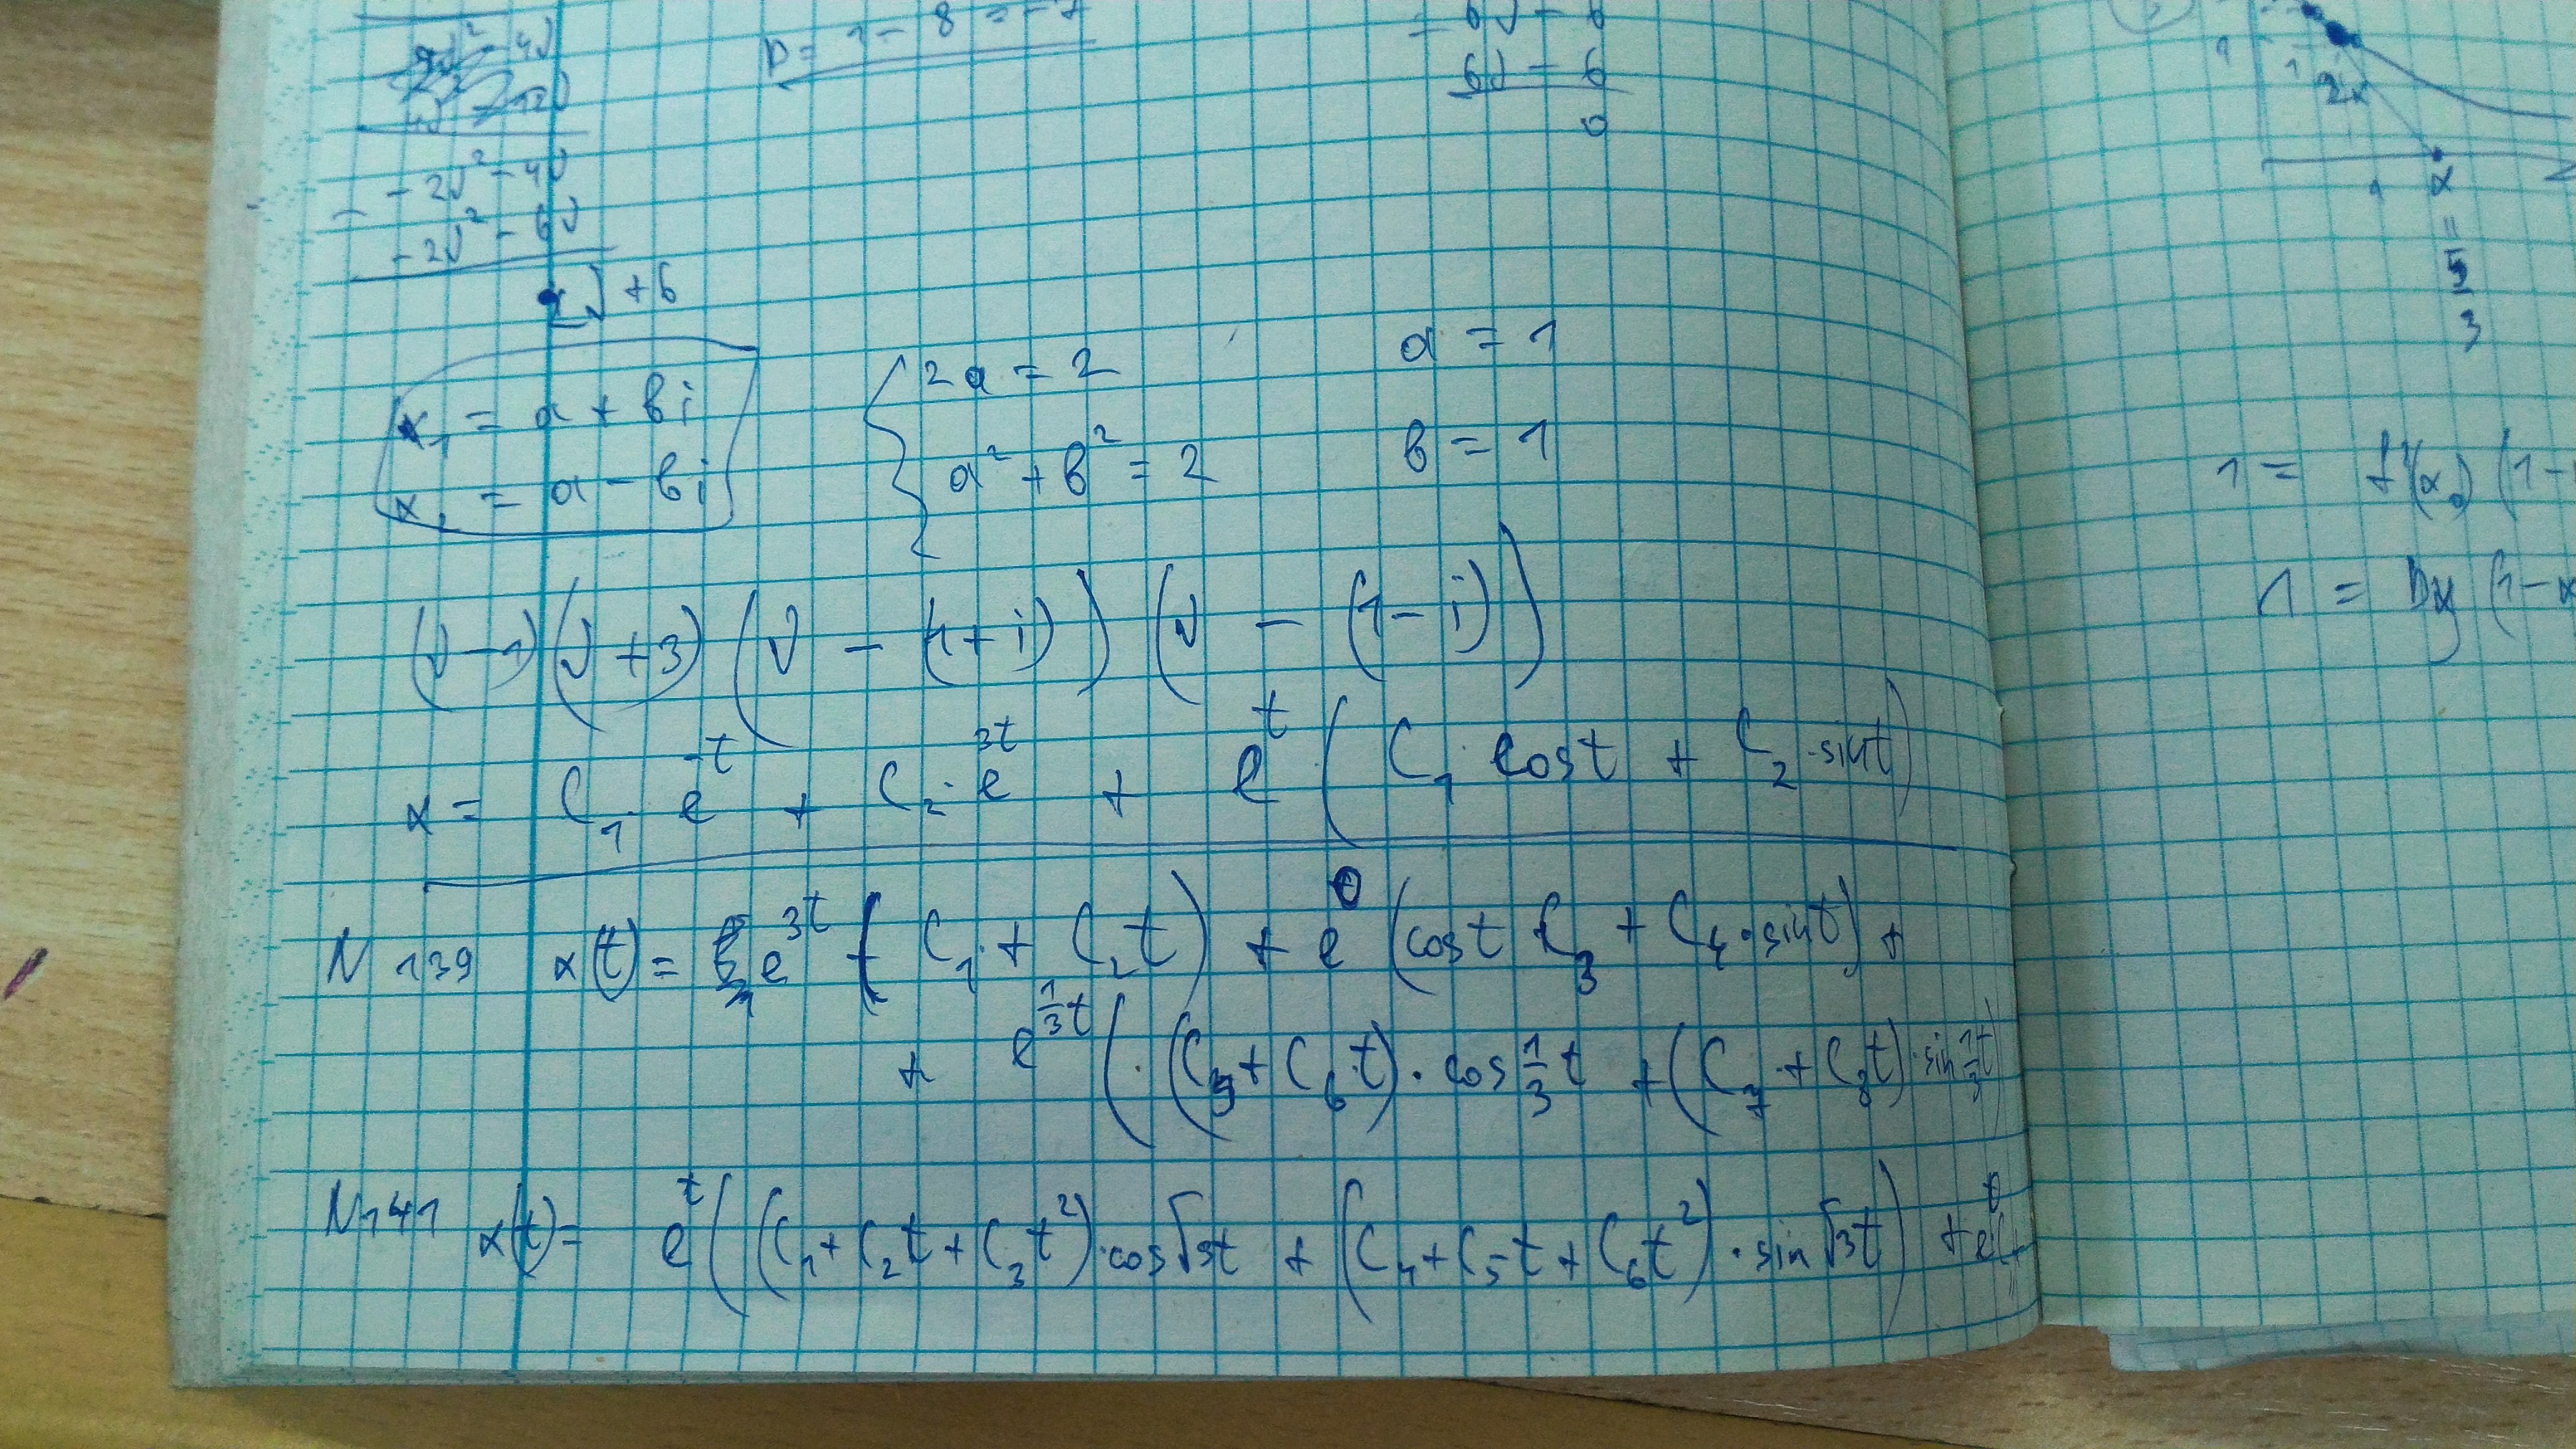 D = 1 - 8 = -7
- 6λ - 6
6λ - 6
0
- 2λ² - 4λ
- 2λ² - 6λ
2λ + 6
x₁ = a + bi
x₂ = a - bi
{ 2a = 2
a² + b² = 2
a = 1
b = 1
(λ - 1)(λ + 3)(λ - (1 + i))(λ - (1 - i))
x = C₁ e^{-t} + C₂ · e^{3t} + e^{t} (C₁ cost + C₂ · sint)
N 139 x(t) = e^{3t} (C₁ + C₂t) + e^{0} (cost C₃ + C₄ · sint) +
+ e^{\frac{1}{3}t} ((C₅ + C₆t) · cos \frac{1}{3}t + (C₇ + C₈t) · sin \frac{1}{3}t)
N 141 x(t) = e^{t} ((C₁ + C₂t + C₃t²) · cos√3t + (C₄ + C₅t + C₆t²) · sin√3t) + e^{0}
1
2x
x
=
3
1 = f'(x₀)(1 -
1 = Dy (1 - x